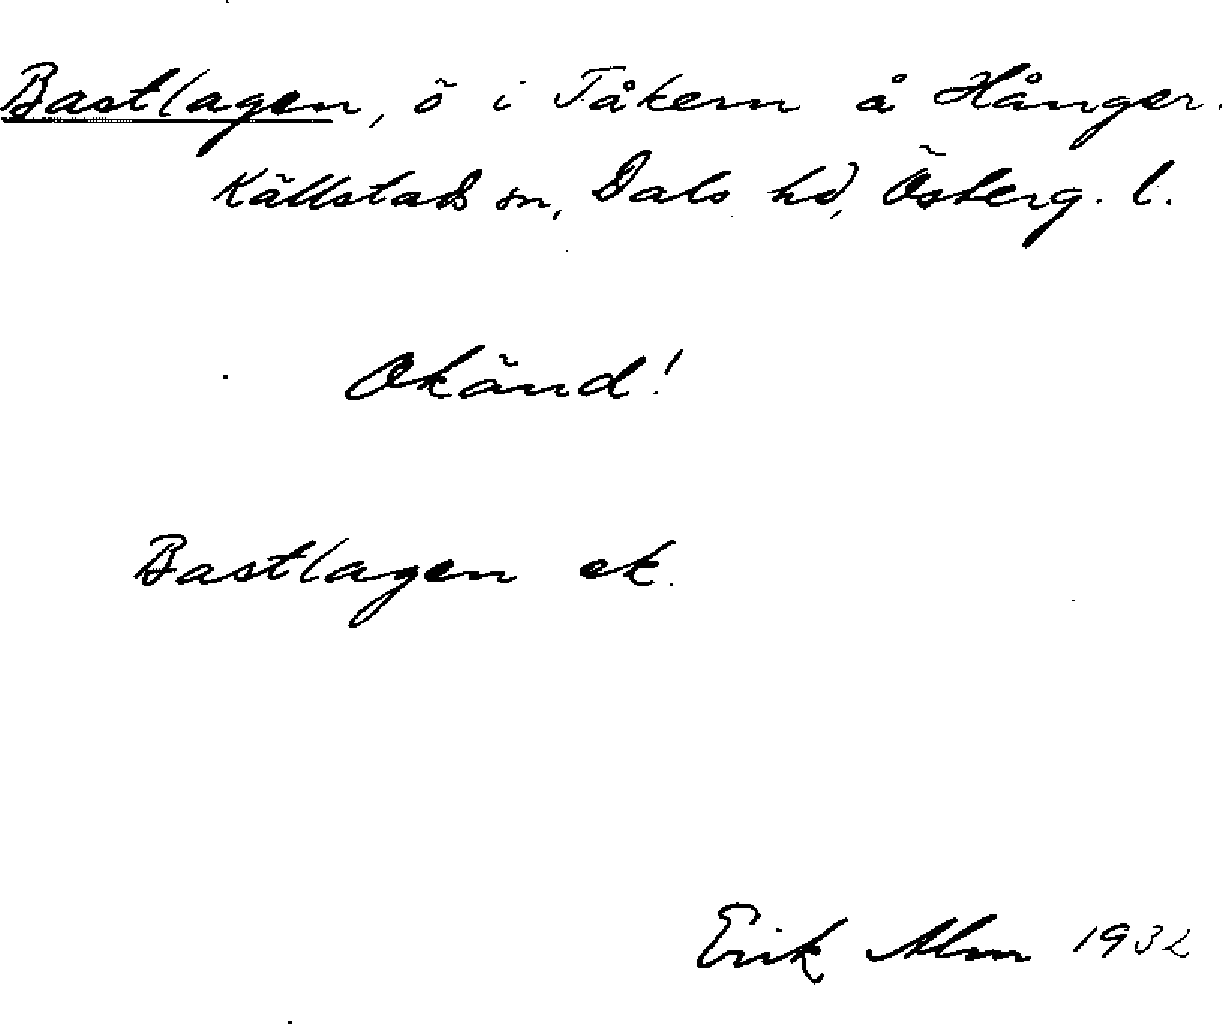 Bastlagen, ö i Tåkern å Hånger.
Källstads sn, Dals hd, Österg. l.
Okänd!
Bastlagen ek.
Erik Alm 1932